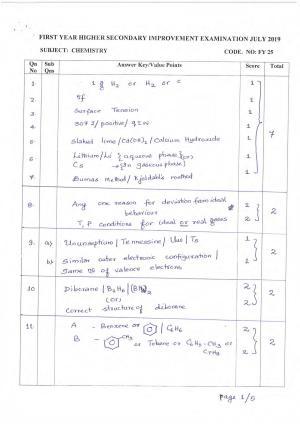 FIRST YEAR HIGHER SECONDARY IMPROVEMENT EXAMINATION JULY 2019
SUBJECT: CHEMISTRY CODE. NO: FY 25
Qn No Sub Qns Answer Key/Value Points Score Total
1 1 g H2 or H2 or 1
2 5f 1
3 Surface Tension 1
4 307 J / positive / 1
5 Slaked lime / Ca(OH)2 / Calcium Hydroxide 1 7
6 Lithium/Li {aqueous phase} (or)
Cs → {In gaseous phase} 1
7 Dumas Method / Kjeldahls method 1
8. Any one reason for deviation from ideal
behaviour 2 2
T, P conditions for ideal or real gases
9. a) Ununseptium / Tennessine / Uus / Ts 1
b) Similar outer electronic configuration / 2
Same no of valence electrons 1
10 Diborane / B2H6 / (BH3)2 2
(or) 2
Correct structure of diborane 2
11 A - Benzene or / C6H6
B - CH3 or Toluene or C6H5-CH3 or 2
C7H8
Page 1/5